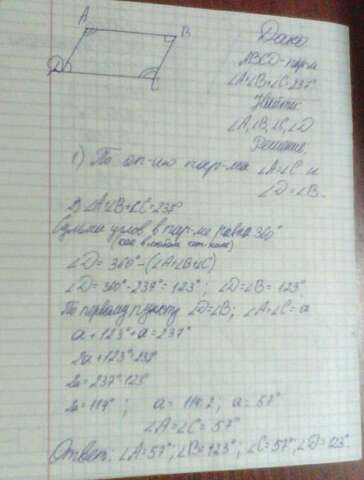 A
B
D
C
Дано
ABCD - пар-м
∠A+∠B+∠C=237°
Найти:
∠A, ∠B, ∠C, ∠D
Решение
1) По оп-ию пар-ма ∠A=∠C и
∠D=∠B.
2) ∠A+∠B+∠C=237°
Сумма углов в пар-ме равна 360°
(как в любом чет-нике)
∠D = 360° - (∠A+∠B+∠C)
∠D = 360° - 237° = 123° ; ∠D=∠B = 123°
По первому пункту ∠D=∠B ; ∠A=∠C = a
a + 123° + a = 237°
2a + 123° = 237°
2a = 237° - 123°
2a = 114° ; a = 114:2 , a = 57°
∠A=∠C = 57°
Ответ: ∠A=57°, ∠B=123°, ∠C=57°, ∠D=123°